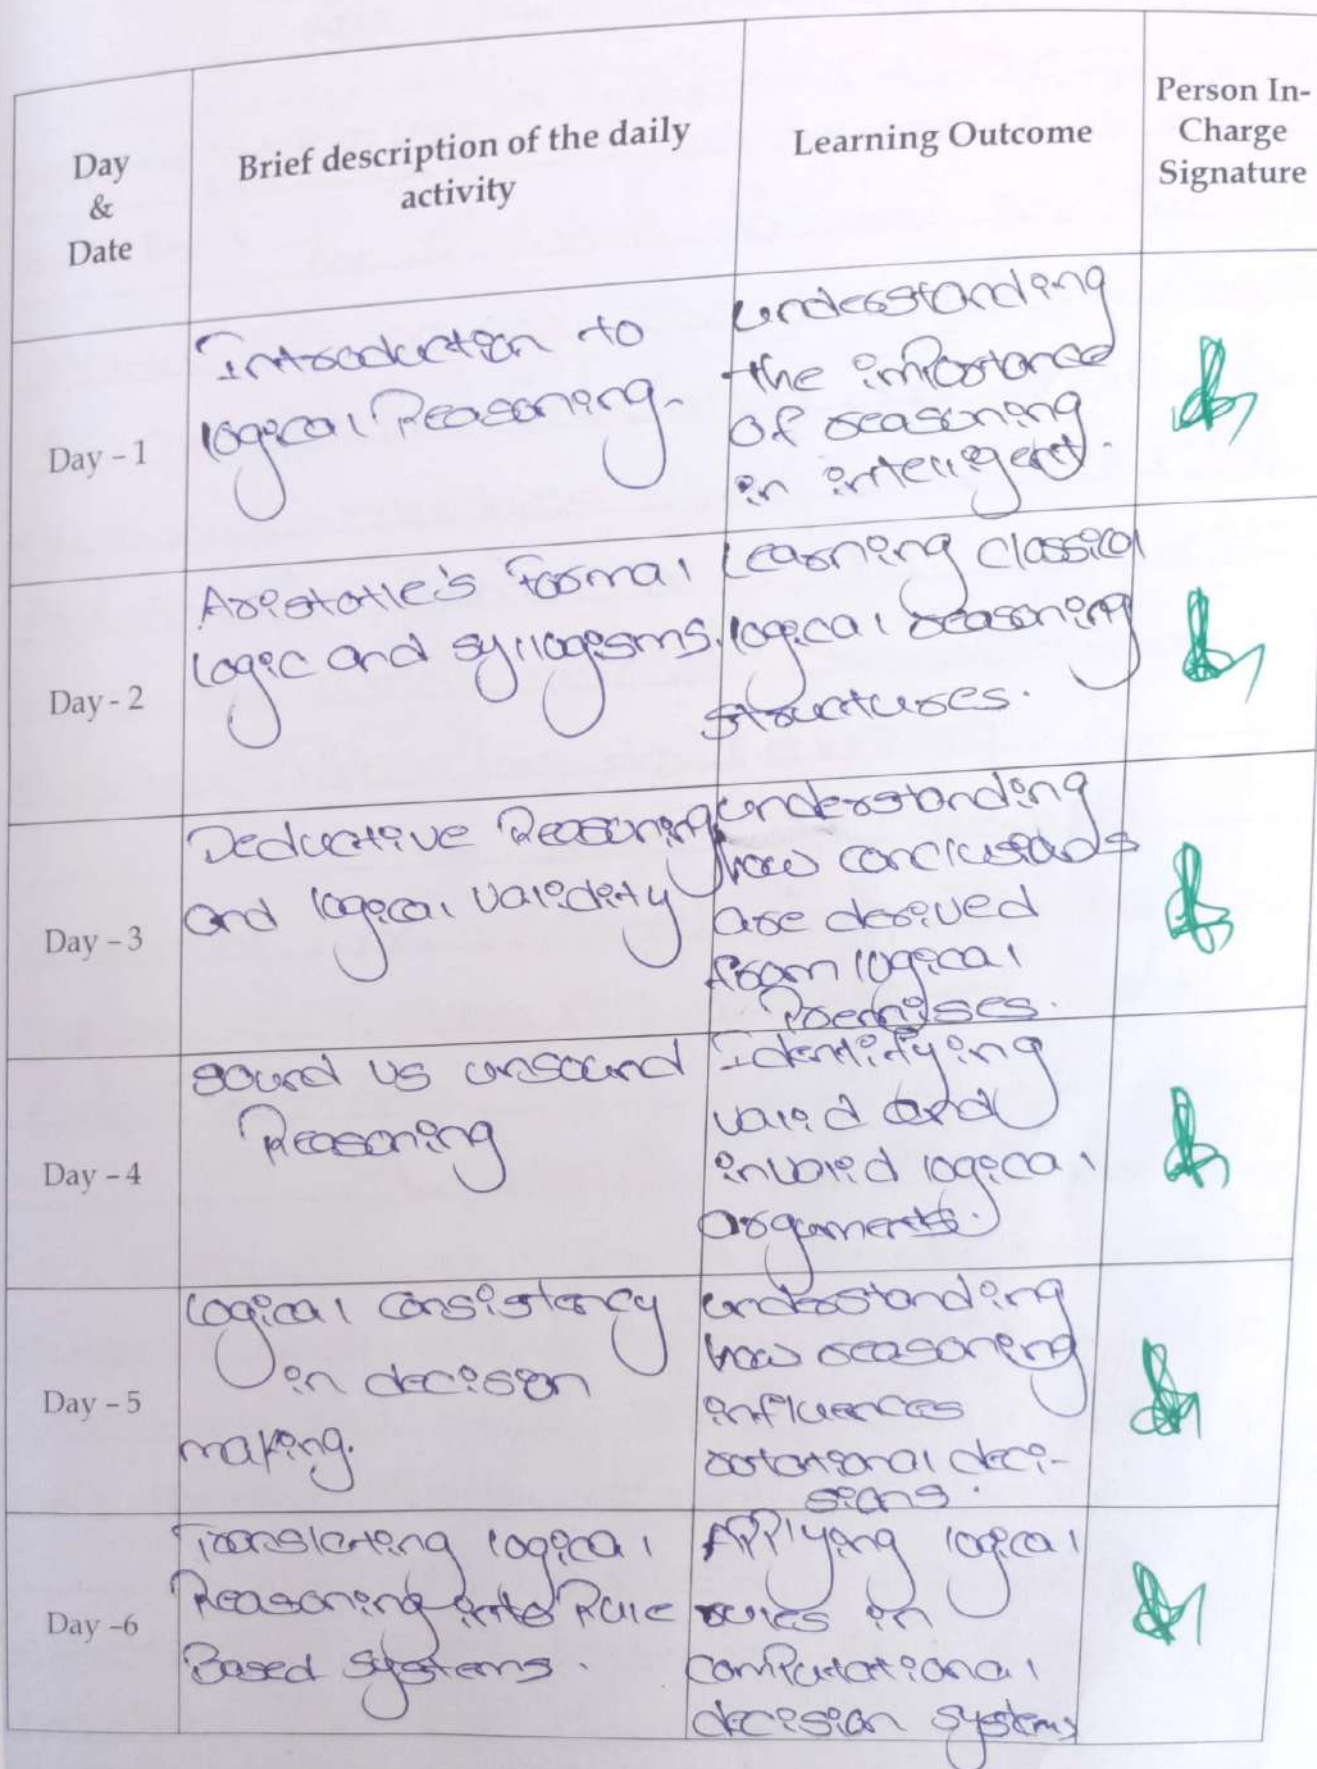 Day
&
Date
Brief description of the daily
activity
Learning Outcome
Person In-
Charge
Signature
Day - 1
Introduction to
logical Reasoning.
understanding
the importance
of reasoning
in intelligent.
Day - 2
Aristotle's Formal
logic and syllogisms.
Learning classical
logical reasoning
structures.
Day - 3
Deductive Reasoning
and logical validity
understanding
how conclusions
are derived
from logical
Premises.
Day - 4
sound vs unsound
Reasoning
Identifying
valid and
invalid logical
arguments.
Day - 5
Logical consistency
in decision
making.
understanding
how reasoning
influences
rotational deci-
sions.
Day -6
Translating logical
Reasoning into Rule
Based systems.
Applying logical
rules in
computational
decision systems